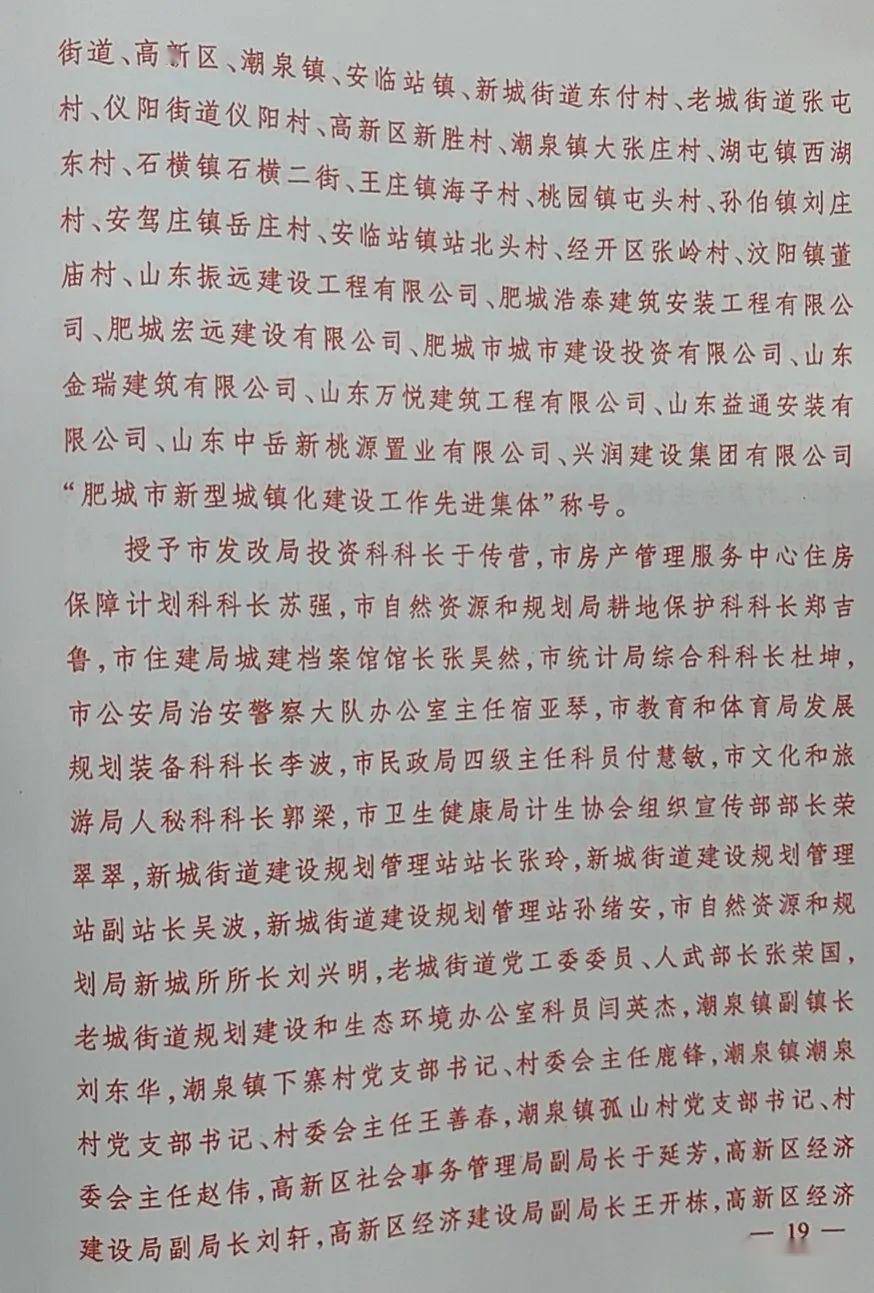 街道、高新区、潮泉镇、安临站镇、新城街道东付村、老城街道张屯
村、仪阳街道仪阳村、高新区新胜村、潮泉镇大张庄村、湖屯镇西湖
东村、石横镇石横二街、王庄镇海子村、桃园镇屯头村、孙伯镇刘庄
村、安驾庄镇岳庄村、安临站镇站北头村、经开区张岭村、汶阳镇董
庙村、山东振远建设工程有限公司、肥城浩泰建筑安装工程有限公
司、肥城宏远建设有限公司、肥城市城市建设投资有限公司、山东
金瑞建筑有限公司、山东万悦建筑工程有限公司、山东益通安装有
限公司、山东中岳新桃源置业有限公司、兴润建设集团有限公司
“肥城市新型城镇化建设工作先进集体”称号。
授予市发改局投资科科长于传营,市房产管理服务中心住房
保障计划科科长苏强,市自然资源和规划局耕地保护科科长郑吉
鲁,市住建局城建档案馆馆长张昊然,市统计局综合科科长杜坤,
市公安局治安警察大队办公室主任宿亚琴,市教育和体育局发展
规划装备科科长李波,市民政局四级主任科员付慧敏,市文化和旅
游局人秘科科长郭梁,市卫生健康局计生协会组织宣传部部长荣
翠翠,新城街道建设规划管理站站长张玲,新城街道建设规划管理
站副站长吴波,新城街道建设规划管理站孙绪安,市自然资源和规
划局新城所所长刘兴明,老城街道党工委委员、人武部长张荣国,
老城街道规划建设和生态环境办公室科员闫英杰,潮泉镇副镇长
刘东华,潮泉镇下寨村党支部书记、村委会主任鹿锋,潮泉镇潮泉
村党支部书记、村委会主任王善春,潮泉镇孤山村党支部书记、村
委会主任赵伟,高新区社会事务管理局副局长于延芳,高新区经济
建设局副局长刘轩,高新区经济建设局副局长王开栋,高新区经济
— 19 —